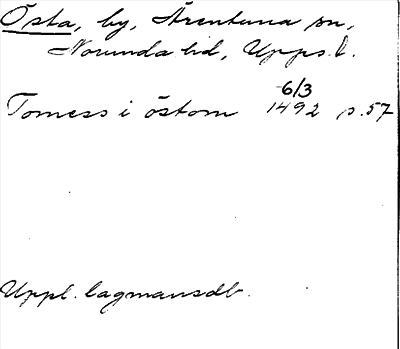 Östa, by, Ärentuna sn,
Norunda hd, Upps. l.
6/3
Tomess i östom 1492 p. 57
Uppl. lagmansdb.